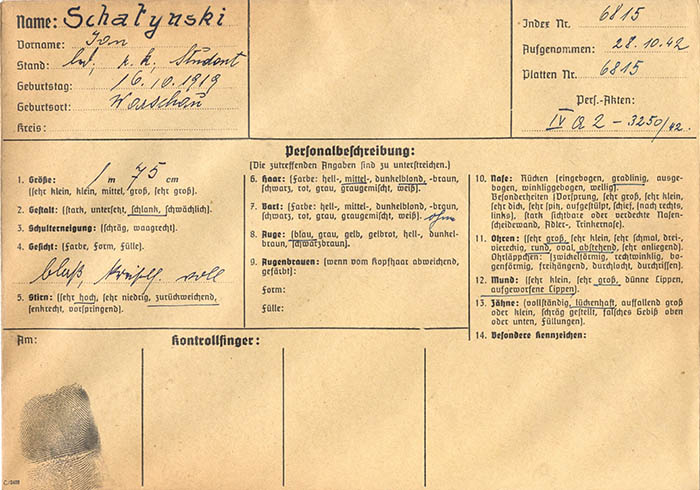 Name: Schatynski
Vorname: Jan
Stand: led, r. k. Student
Geburtstag: 16. 10. 1919
Geburtsort: Warschau
Kreis:
Index Nr. 6815
Aufgenommen: 28. 10. 42
Platten Nr. 6815
Pers.-Akten:
IV a 2 – 3250/42.
Personalbeschreibung:
(Die zutreffenden Angaben sind zu unterstreichen.)
1. Größe: 1 m 75 cm
(sehr klein, klein, mittel, groß, sehr groß).
2. Gestalt: (stark, untersetzt, schlank, schwächlich).
3. Schulterneigung: (schräg, waagrecht).
4. Gesicht: (Farbe, Form, Fülle).
blaß, voll
5. Stirn: (sehr hoch, sehr niedrig, zurückweichend,
senkrecht, vorspringend).
6. Haar: (Farbe: hell-, mittel-, dunkelblond, -braun,
schwarz, rot, grau, graugemischt, weiß).
7. Bart: (Farbe: hell-, mittel-, dunkelblond, -braun,
schwarz, rot, grau, graugemischt, weiß). ohne
8. Auge: (blau, grau, gelb, gelbrot, hell-, dunkel-
braun, schwarzbraun).
9. Augenbrauen: (wenn vom Kopfhaar abweichend,
gefärbt):
Form:
Fülle:
10. Nase: Rücken (eingebogen, gradlinig, ausge-
bogen, winkliggebogen, wellig).
Besonderheiten (Vorsprung, sehr groß, sehr klein,
sehr dick, sehr spitz, aufgestülpt, schief, (nach rechts,
links), stark sichtbare oder verdeckte Nasen-
scheidewand, Adler-, Trinkernase).
11. Ohren: (sehr groß, sehr klein, sehr schmal, drei-
viereckig, rund, oval, abstehend, sehr anliegend).
Ohrläppchen: (zwickelförmig, rechtwinklig, bo-
genförmig, freihängend, durchlocht, durchrissen).
12. Mund: (sehr klein, sehr groß, dünne Lippen,
aufgeworfene Lippen).
13. Zähne: (vollständig, lückenhaft, auffallend groß
oder klein, schräg gestellt, falsches Gebiß oben
oder unten, Füllungen).
14. Besondere Kennzeichen:
Am:
Kontrollfinger: